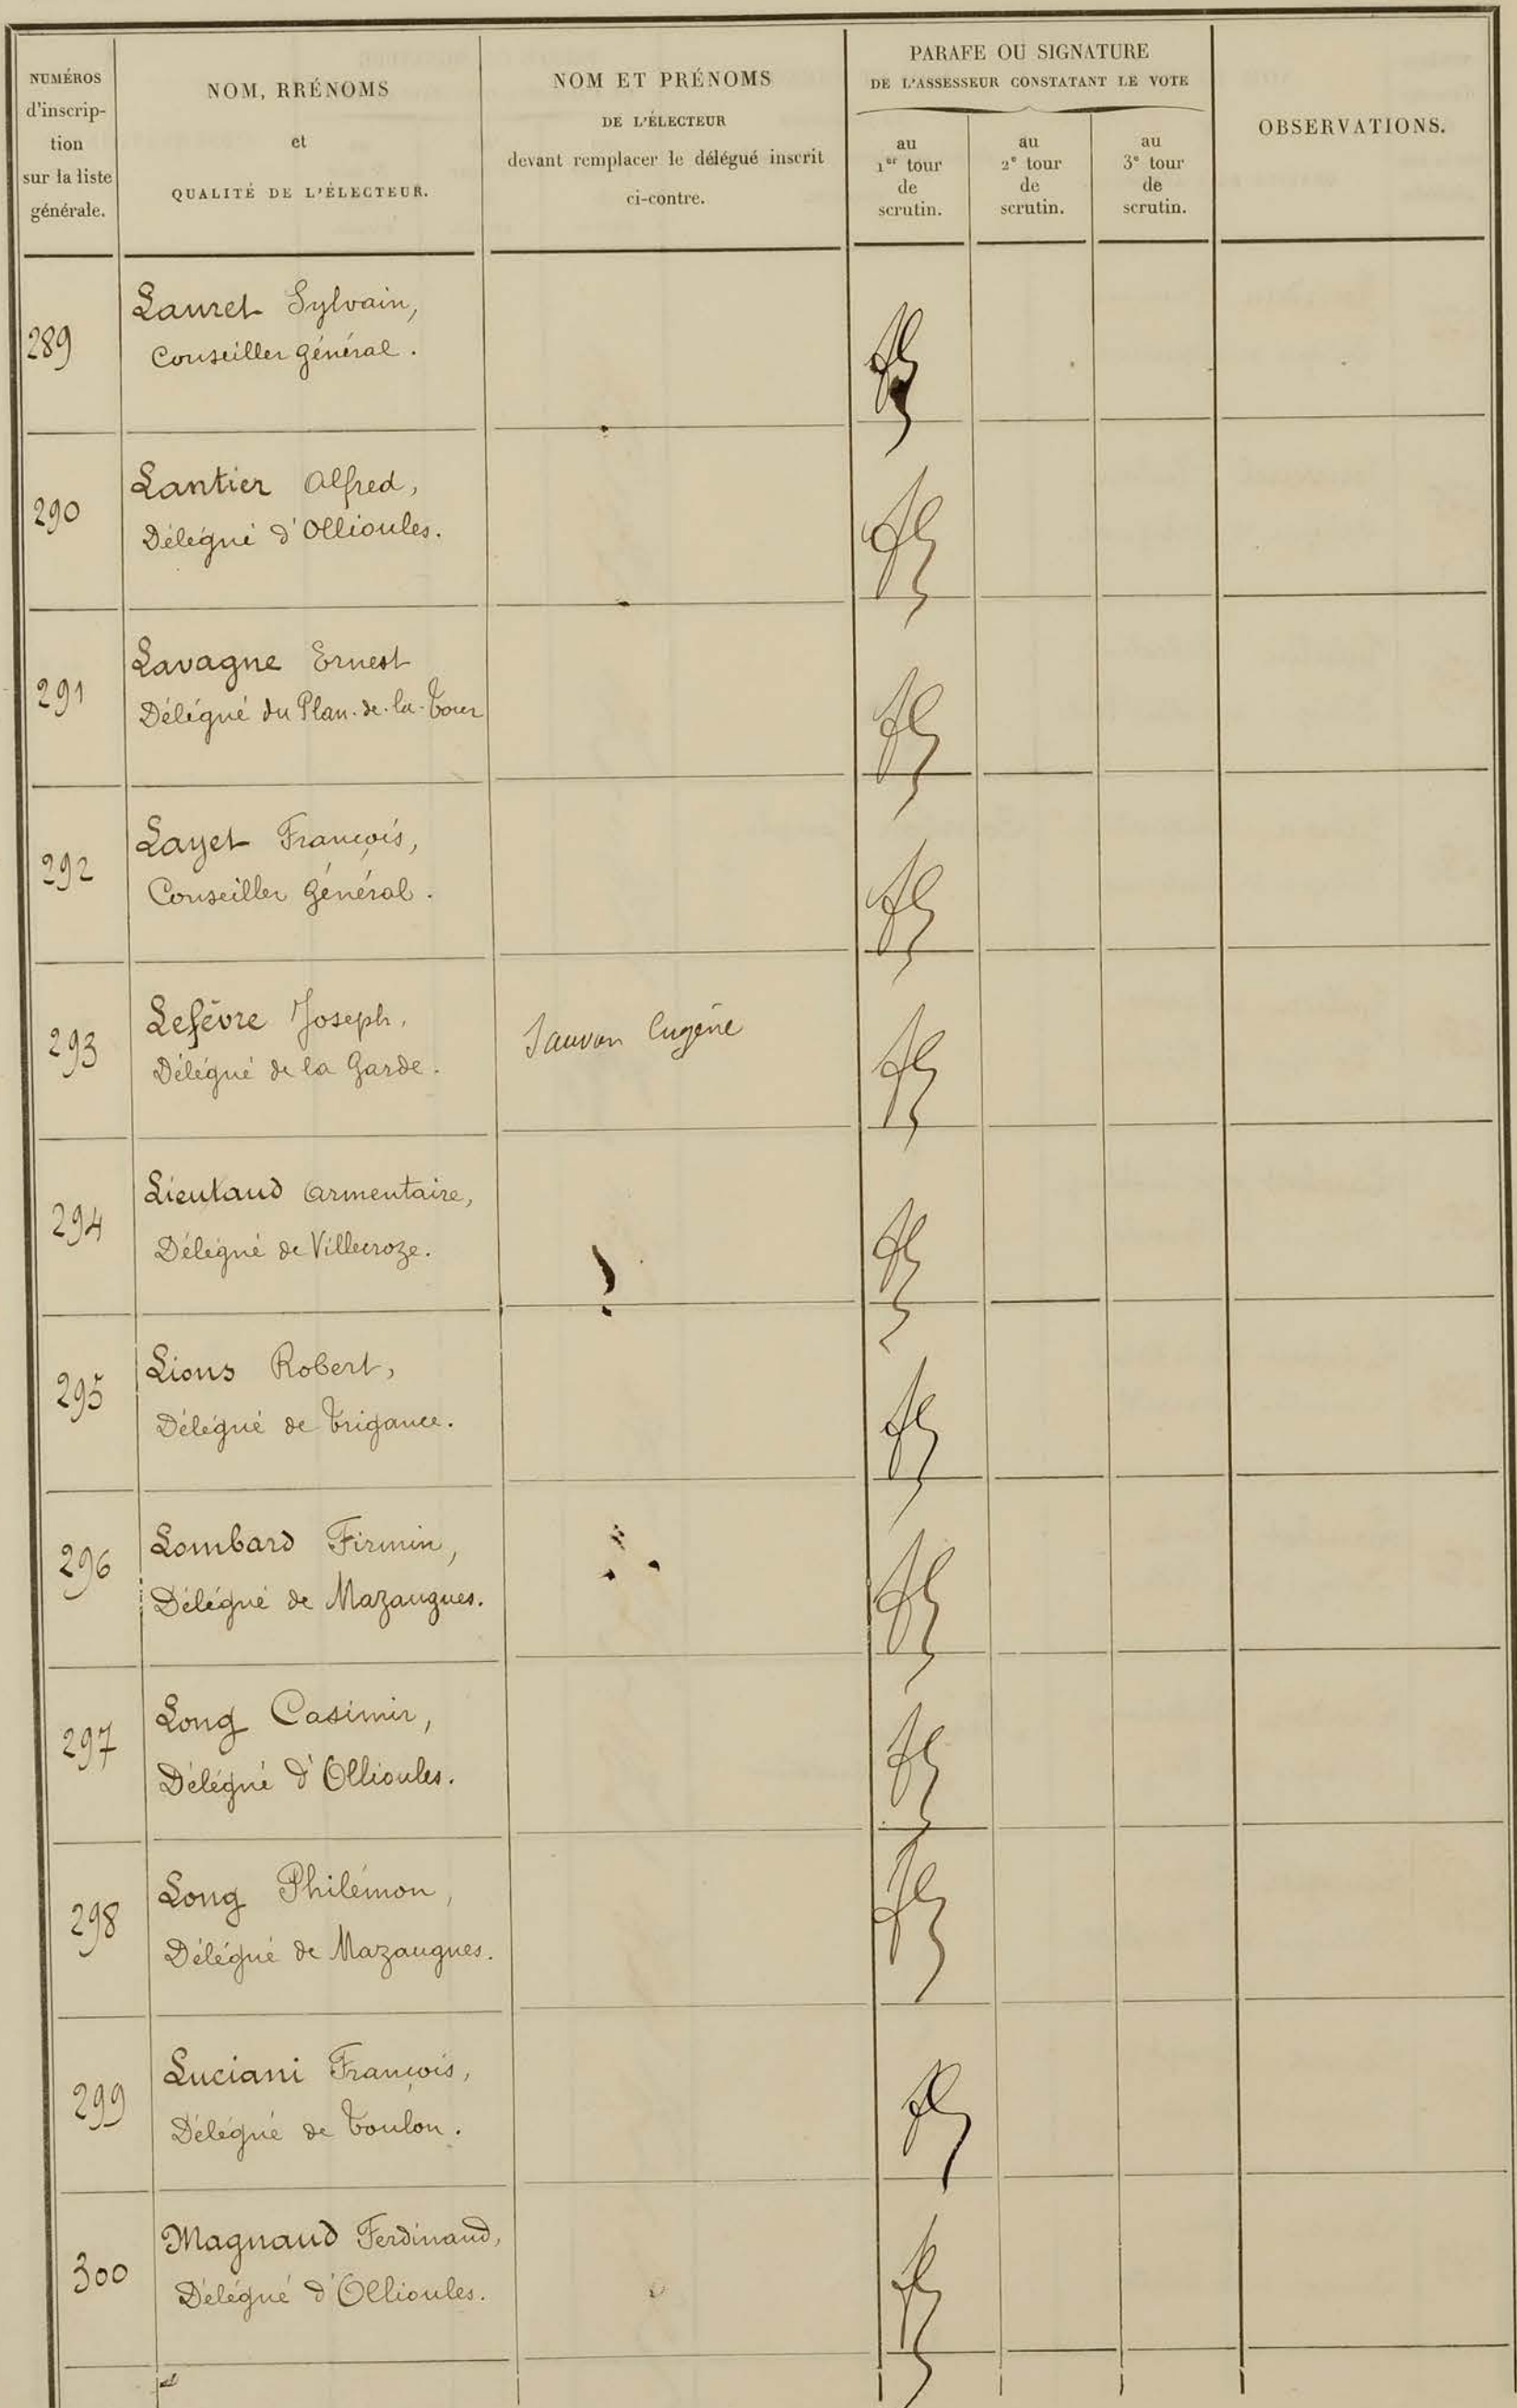 NUMÉROS
d'inscrip-
tion
sur la liste
générale.
NOM, RRÉNOMS
et
QUALITÉ DE L'ÉLECTEUR.
NOM ET PRÉNOMS
DE L'ÉLECTEUR
devant remplacer le délégué inscrit
ci-contre.
PARAFE OU SIGNATURE
DE L'ASSESSEUR CONSTATANT LE VOTE
au
1er tour
de
scrutin.
au
2e tour
de
scrutin.
au
3e tour
de
scrutin.
OBSERVATIONS.
289
Lauret Sylvain,
Conseiller général.
290
Lantier Alfred,
Délégué d'Ollioules.
291
Lavagne Ernest
Délégué du Plan-de-la-Tour
292
Layet François,
Conseiller Général.
293
Lefèvre Joseph,
Délégué de la Garde.
Sauvan Eugène
294
Lieutaud Armentaire,
Délégué de Villecroze.
295
Lions Robert,
Délégué de Trigance.
296
Lombard Firmin,
Délégué de Mazaugues.
297
Long Casimir,
Délégué d'Ollioules.
298
Long Philémon,
Délégué de Mazaugues.
299
Luciani François,
Délégué de Toulon.
300
Magnaud Ferdinand,
Délégué d'Ollioules.